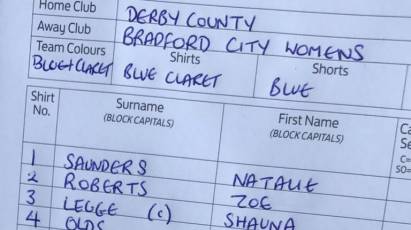 Home Club DERBY COUNTY
Away Club BRADFORD CITY WOMENS
Team Colours Shirts Shorts
BLUE+CLARET BLUE CLARET BLUE
Shirt No. Surname (BLOCK CAPITALS) First Name (BLOCK CAPITALS)
1 SAUNDERS NATALIE
2 ROBERTS ZOE
3 LEGGE (C) SHAUNA
4 OLDS